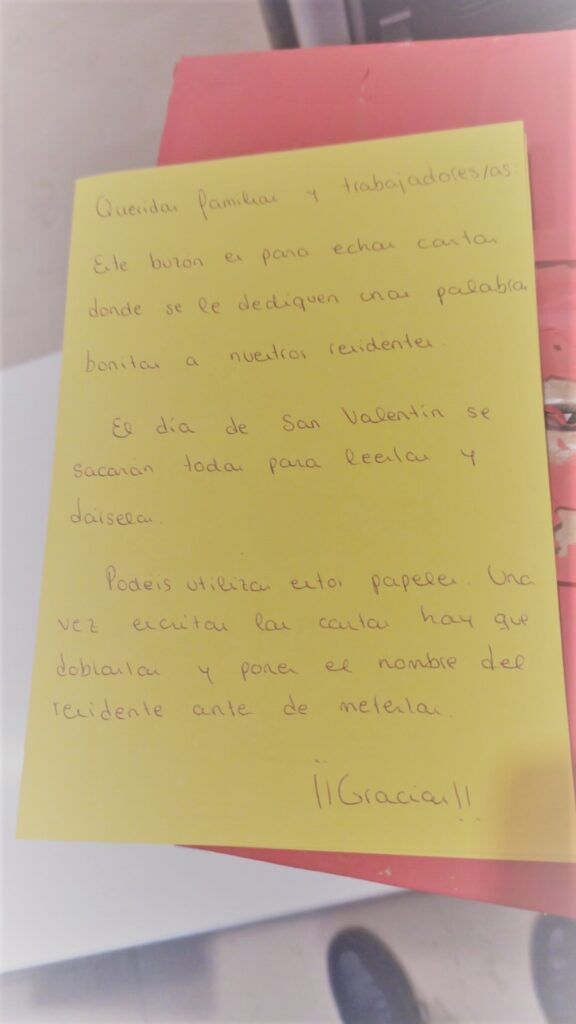 Queridas familias y trabajadores/as:
Este buzon es para echar cartas
donde se le dediquen unas palabras
bonitas a nuestros residentes.
El día de San Valentín se
sacarán todas para leerlas y
dárselas.
Podeis utilizar estos papeles. Una
vez escritas las cartas hay que
doblarlas y poner el nombre del
residente ante de meterlas.
¡¡Gracias!!